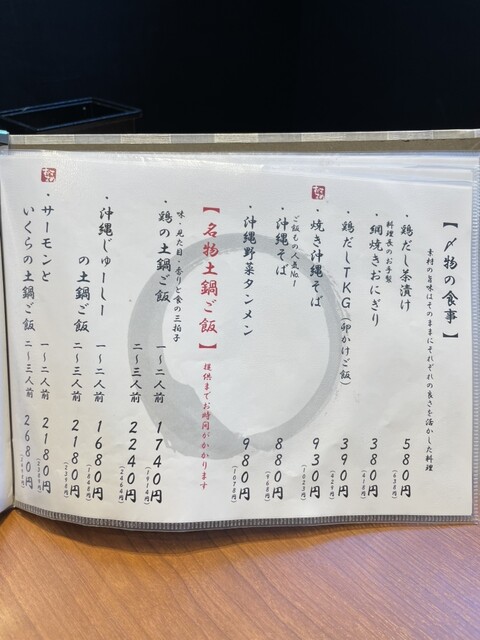 【〆物の食事】
素材の旨味はそのままにそれぞれの良さを活かした料理
・鶏だし茶漬け 580円
(638円)
料理長のお手製
・網焼きおにぎり 380円
(418円)
・鶏だしTKG(卵かけご飯) 390円
(429円)
・焼き沖縄そば 930円
(1023円)
ご飯もの人気No.1
・沖縄そば 880円
(968円)
・沖縄野菜タンメン 980円
(1078円)
【名物土鍋ご飯】 提供までお時間がかかります
味・見た目・香りと食の三拍子
・鶏の土鍋ご飯 一〜二人前 1740円
(1914円)
二〜三人前 2240円
(2464円)
・沖縄じゅーしー
の土鍋ご飯 一〜二人前 1680円
(1848円)
二〜三人前 2180円
(2398円)
・サーモンと
いくらの土鍋ご飯 一〜二人前 2180円
(2398円)
二〜三人前 2680円